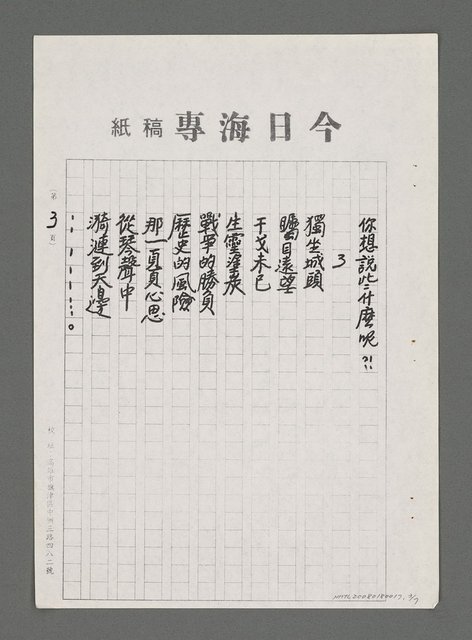 今日海專 稿紙
你想說些什麼呢?!!
3
獨坐城頭
矚目遠望
干戈未已
生靈塗炭
戰爭的勝負
歷史的風險
那一頁頁心思
從琴聲中
漪漣到天邊
⋯⋯⋯⋯。
(第3頁)
校址:高雄市旗津區中洲三路四八二號
NMTL20080180017, 3/7